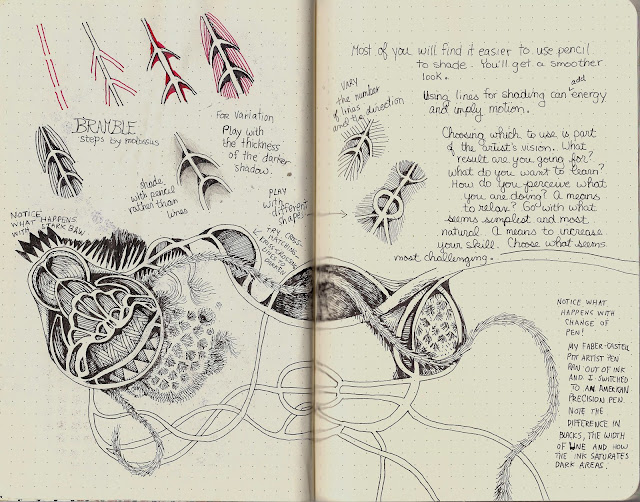 BRAMBLE
steps by molossus
For Variation
Play with
the thickness
of the darker
shadow.
shade
with pencil
rather than
lines
PLAY
with
different
shape.
NOTICE
WHAT HAPPENS
WITH STARK B&W
TRY CROSS-
HATCHING
VARY
the number
of lines
and the direction
Most of you will find it easier to use pencil
to shade. You'll get a smoother
look.
add
Using lines for shading can energy
and imply motion.
Choosing which to use is part
of the artist's vision. What
result are you going for?
What do you want to learn?
How do you perceive what
you are doing? A means
to relax? Go with what
seems simplest and most
natural. A means to increase
your skill. Choose what seems
most challenging.
NOTICE WHAT
HAPPENS WITH
CHANGE OF
PEN!
MY FABER-CASTELL
PITT ARTIST PEN
RAN OUT OF INK
AND I SWITCHED
TO AN AMERICAN
PRECISION PEN.
NOTE THE
DIFFERENCE IN
BLACKS, THE WIDTH
OF LINE AND HOW
THE INK SATURATES
DARK AREAS.